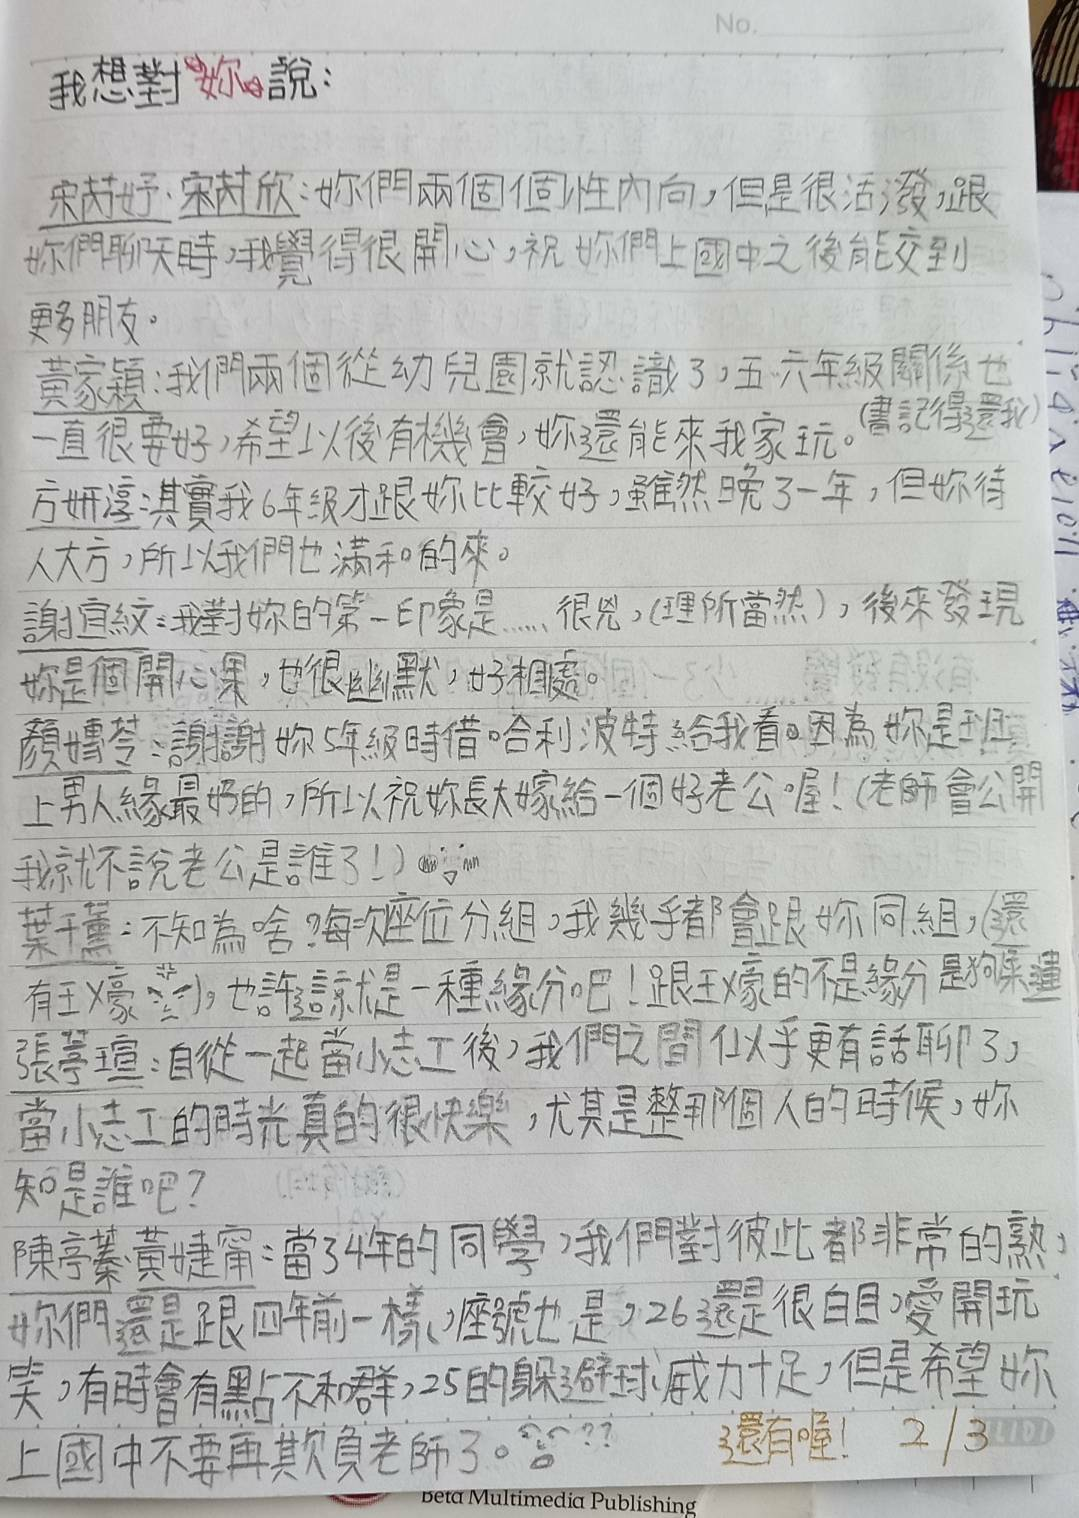 No.
我想對妳說：
宋芮妤、宋芮欣：妳們兩個個性內向，但是很活潑，跟
妳們聊天時，我覺得很開心，祝妳們上國中之後能交到
更多朋友。
黃家穎：我們兩個從幼兒園就認識了，五、六年級關係也
一直很要好，希望以後有機會，妳還能來我家玩。(書記得還我)
方妍淳：其實我6年級才跟妳比較好，雖然晚了一年，但妳待
人大方，所以我們也滿和的來。
謝宜紋：我對妳的第一印象是……很兇，(理所當然)，後來發現
妳是個開心果，也很幽默，好相處。
顏嫥苓：謝謝妳5年級時借哈利波特給我看。因為妳是班
上男人緣最好的，所以祝妳長大嫁給一個好老公喔！(老師會公開
我就不說老公是誰了！)
葉千薰：不知為啥？每次座位分組，我幾乎都會跟妳同組，(還
有王ㄨ濠)，也許這就是一種緣分吧！跟王ㄨ濠的不是緣分是狗屎運
張葶瑄：自從一起當小志工後，我們之間似乎更有話聊了，
當小志工的時光真的很快樂，尤其是整那個人的時候，妳
知是誰吧？
陳亭蓁、黃婕甯：當了4年的同學，我們對彼此都非常的熟，
妳們還是跟四年前一樣，座號也是，26還是很白目，愛開玩
笑，有時會有點不和群，25的躲避球威力十足，但是希望妳
上國中不要再欺負老師了。??
還有喔！ 2/3
Beta Multimedia Publishing